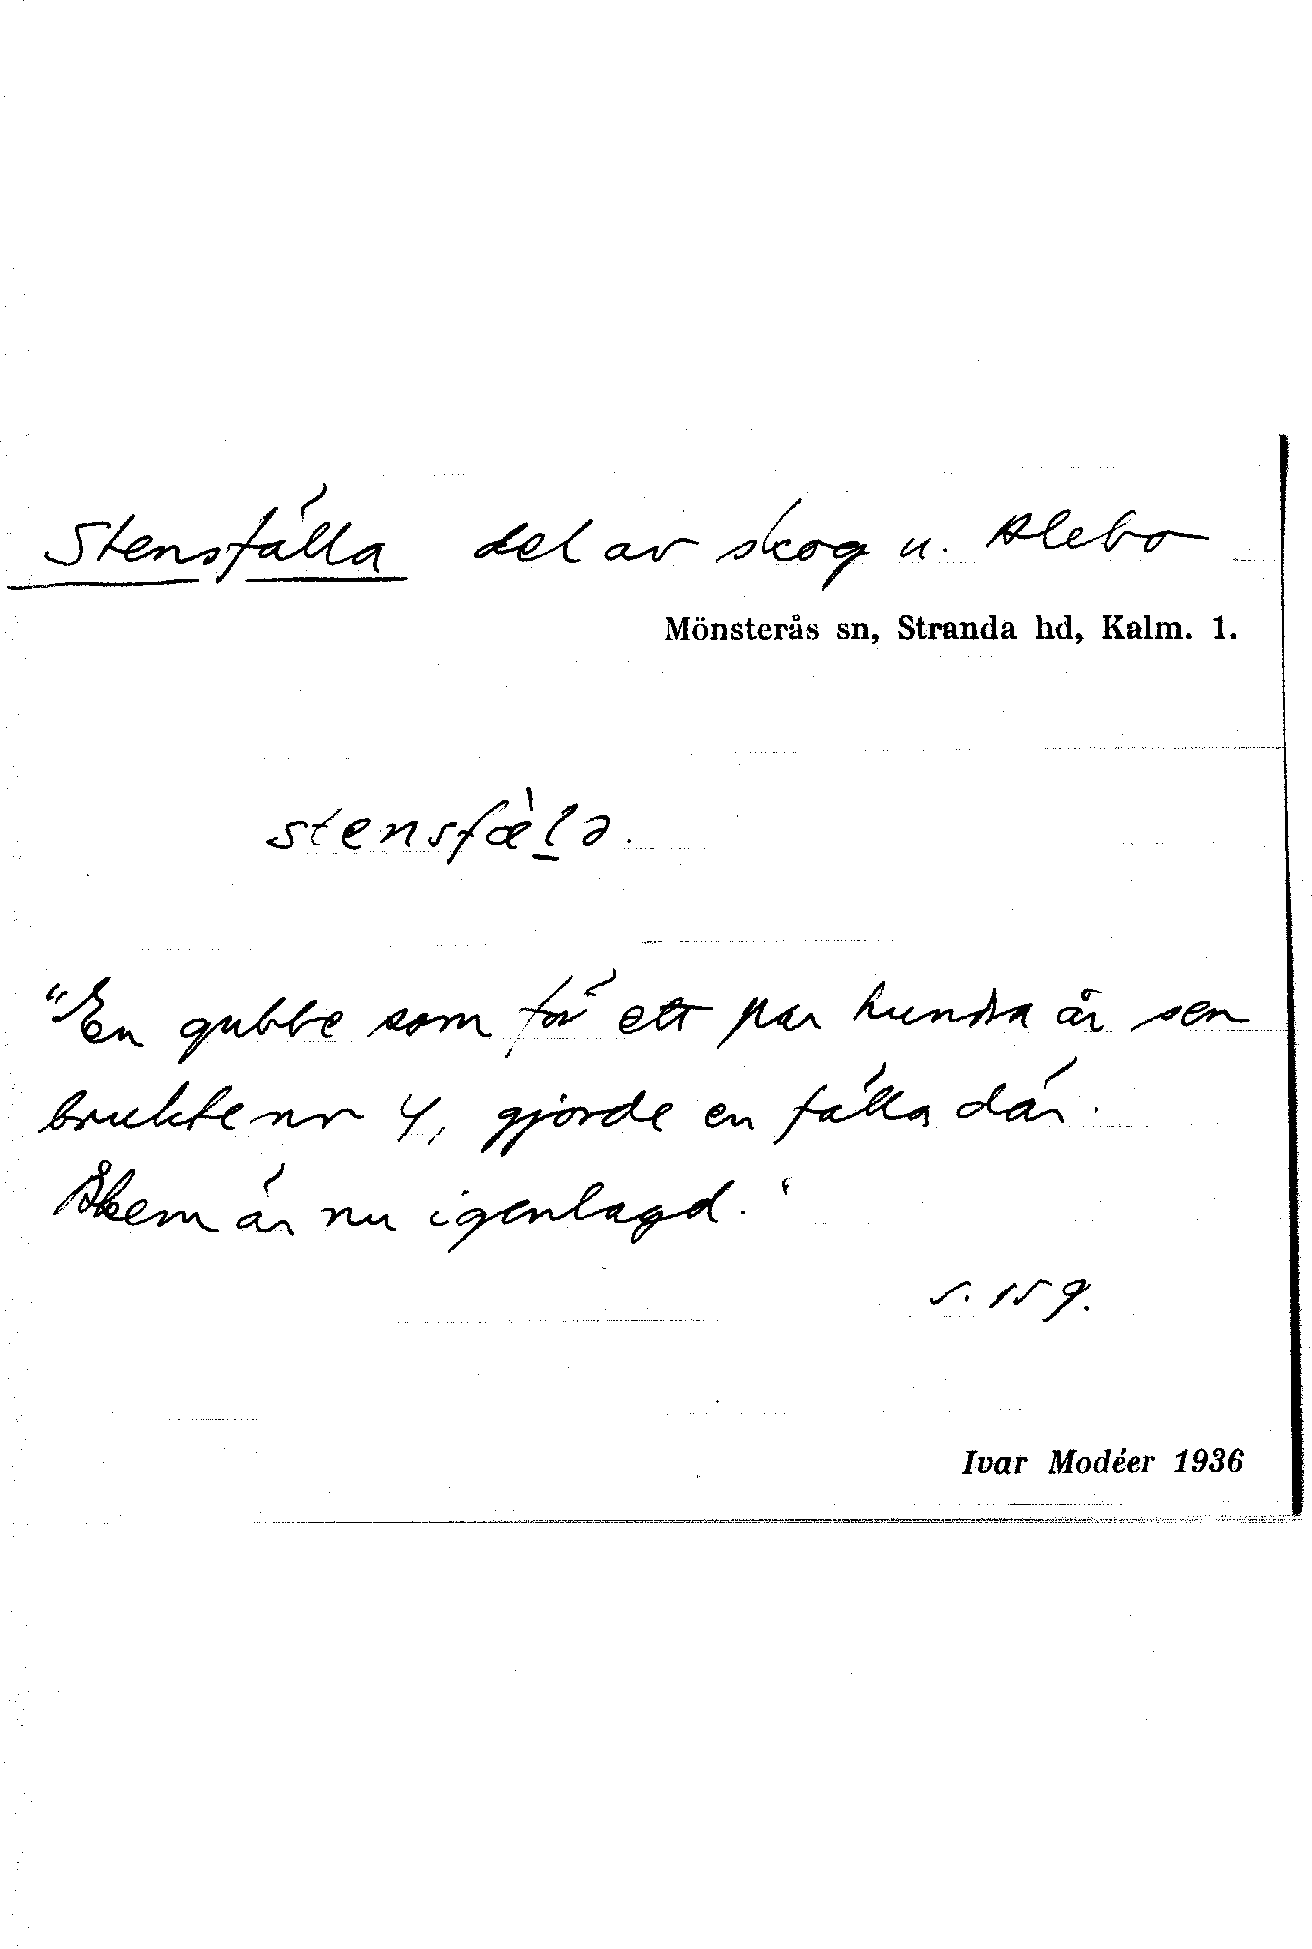 Stensfälla del av skog u. Alebo
Mönsterås sn, Stranda hd, Kalm. 1.
stensfæ̀l̠ə.
"En gubbe som för ett par hundra år sen
brukte nr 4, gjorde en fälla där.
Åkern är nu igenlagd."
s. 159.
Ivar Modéer 1936